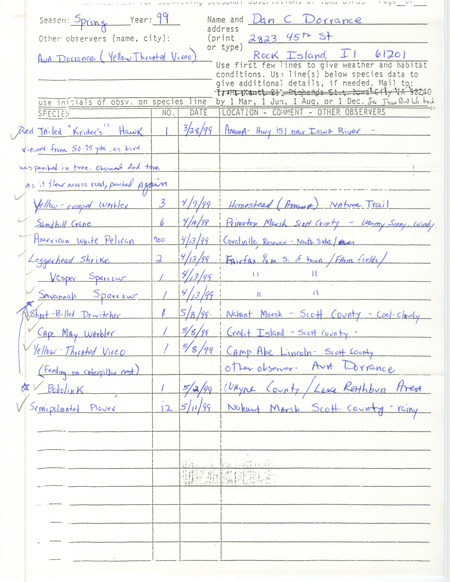 Season: Spring Year: 99 Name and Dan C Dorrance
Other observers (name, city): address
(print 2823 45th St
or type)
Ava Dorrance (Yellow Throated Vireo) Rock Island, Il 61201
Use first few lines to give weather and habitat
conditions. Use line(s) below species data to
give additional details, if needed. Mail to:
use initials of obsv. on species line by 1 Mar, 1 Jun, 1 Aug, or 1 Dec.
SPECIES NO. DATE LOCATION - COMMENT - OTHER OBSERVERS
Red Tailed "Krider's" Hawk 1 3/28/99 Amana - Hwy 151 near Iowa River -
viewed from 50-75 yds, as bird
was perched in tree. Observed 2nd time
As it flew across road, perched Again
Yellow-rumped Warbler 3 4/7/99 Homestead (Amana) Nature Trail
Sandhill Crane 6 Princeton Marsh Scott County - Sunny, Windy
American White Pelican 4/13/99 Coralville
Loggerhead Shrike 2 4/13/99 Fairfax S. of town / Farm fields/
Vesper Sparrow 1 4/13/99 " "
Savannah Sparrow 1 4/13/99 " "
Short-Billed Dowitcher 5/8/99 Nahant Marsh - Scott County - Cool-cloudy
Cape May Warbler 1 5/8/99 Credit Island - Scott County -
Yellow-Throated Vireo 1 5/8/99 Camp Abe Lincoln - Scott County
(feeding on caterpillar nest) other observer - Ava Dorrance
Bobolink 1 5/2/99 Wayne County / Lake Rathbun Area
Semipalmated Plover 12 5/11/99 Nahant Marsh Scott County - rainy